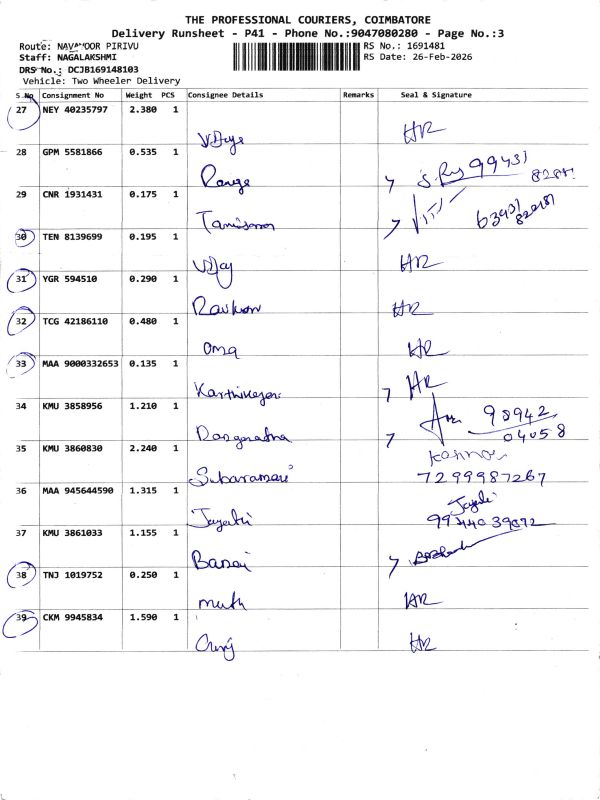 THE PROFESSIONAL COURIERS, COIMBATORE
Delivery Runsheet - P41 - Phone No.:9047080280 - Page No.:3
Route: NAVAVOOR PIRIVU
RS No.: 1691481
Staff: NAGALAKSHMI
RS Date: 26-Feb-2026
DRS No.: DCJB169148103
Vehicle: Two Wheeler Delivery
S.No Consignment No Weight PCS Consignee Details Remarks Seal & Signature
27 NEY 40235797 2.380 1
HR
28 GPM 5581866 0.535 1
99431
Range
29 CNR 1931431 0.175 1
30 TEN 8139699 0.195 1
Vijay HR
31 YGR 594510 0.290 1
HR
32 TCG 42186110 0.480 1
Oma HR
33 MAA 9000332653 0.135 1
Karthikeyan HR
34 KMU 3858956 1.210 1
98942
04058
35 KMU 3860830 2.240 1
Kannan
7299987267
36 MAA 945644590 1.315 1
Jayathi
37 KMU 3861033 1.155 1
38 TNJ 1019752 0.250 1
muth HR
39 CKM 9945834 1.590 1
HR